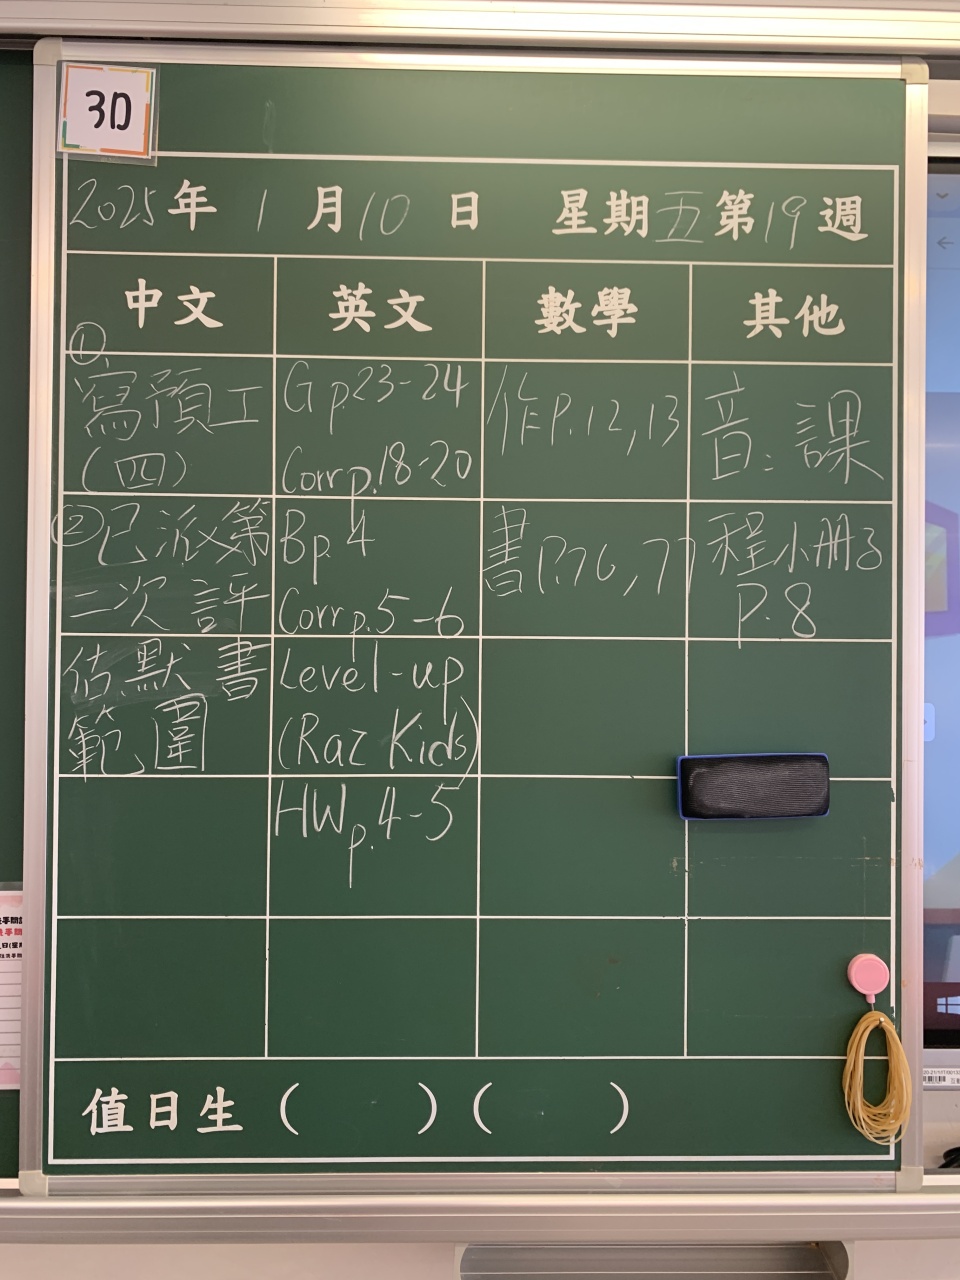 3D
2025年 1 月10 日 星期五第19週
中文 英文 數學 其他
①
寫預工
(四)
②已派第
二次評
估默書
範圍
G p.23-24
Corr p.18-20
B p.4
Corr p.5-6
Level-up
(Raz Kids)
HW p.4-5
作P.12,13
書P.76,77
音:課
程小冊子
P.8
值日生( )( )